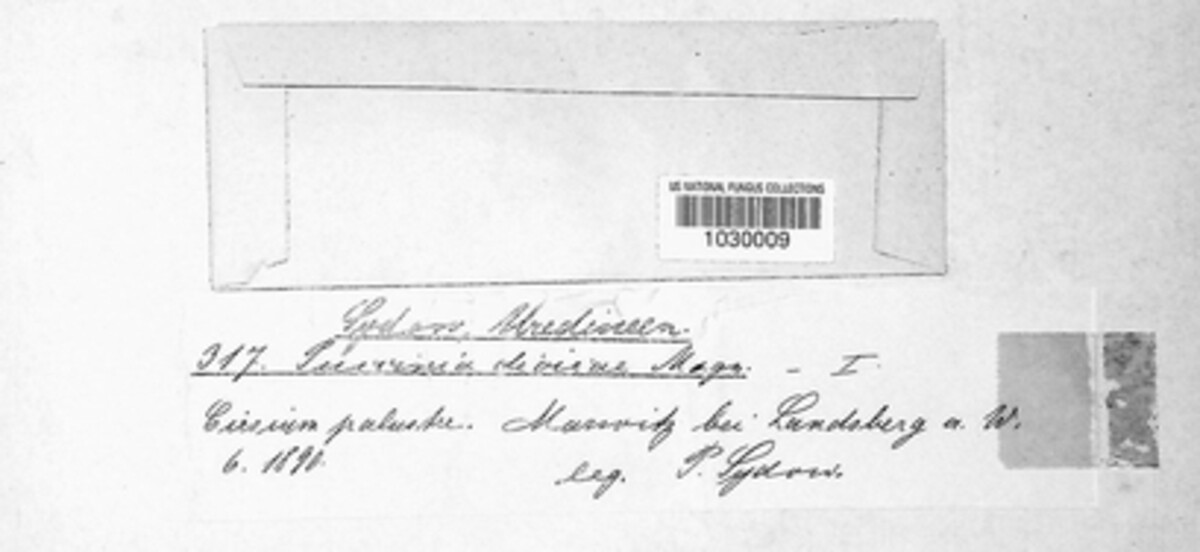 US NATIONAL FUNGUS COLLECTIONS
1030009
Sydow, Uredineen.
317. Puccinia dioicae Magn. – I.
Cirsium palustre. Marwitz bei Landsberg a. W.
6. 1890. leg. P. Sydow.